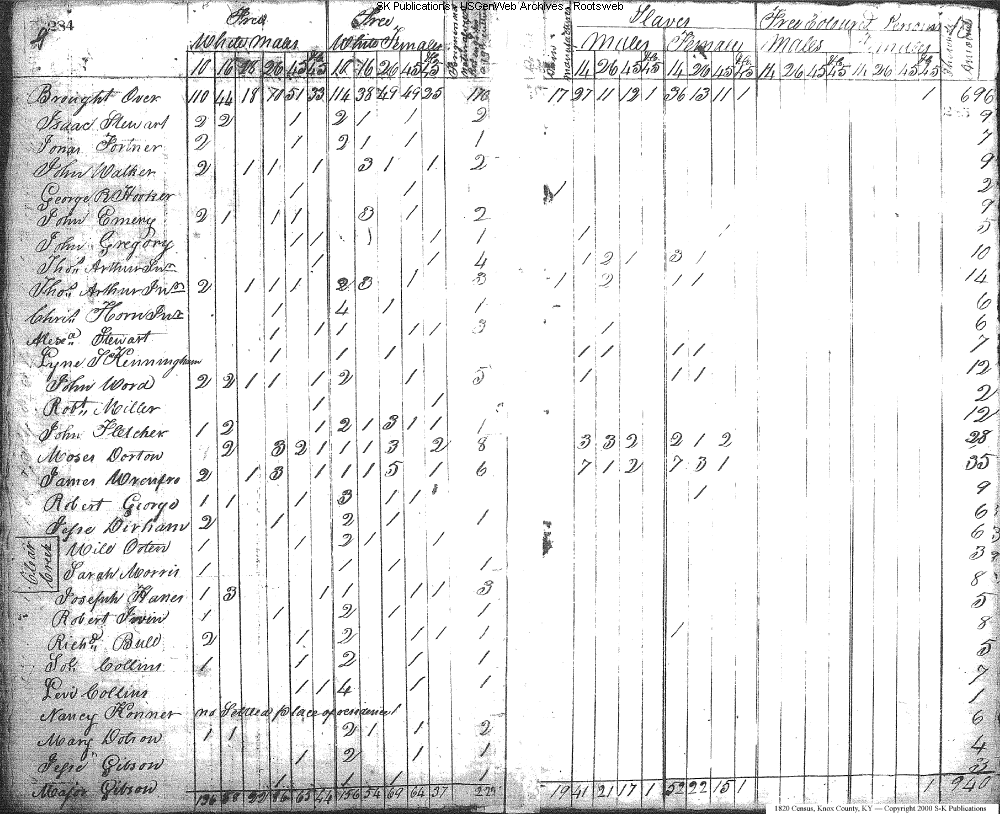 SK Publications - USGenWeb Archives - Rootsweb
284
Free Free Slaves Free Colour'd Persons
White Males White Females Males Females Males Females
10 16 18 26 45 &c 45 10 16 26 45 &c 45 14 26 45 &c 45 14 26 45 &c 45 14 26 45 &c 45 14 26 45 &c 45 Amount
Brought Over 110 44 18 70 51 33 114 38 49 49 25 170 17 27 11 12 1 36 13 11 1 1 696
Isaac Stewart 2 2 1 2 1 1 2 9
Jonas Fortner 2 1 2 1 1 1 7
John Walker 2 1 1 1 3 1 1 2 9
George R Hooker 1 1 1 2
John Emery 2 1 1 1 3 1 2 9
John Gregory 1 1 1 1 1 1 1 5
Thos. Arthur Snr 1 1 4 1 2 1 3 1 10
Thos. Arthur Jnr 2 1 1 1 2 3 1 3 1 2 1 1 14
Chris. Horn 1 4 1 1 6
Alexa. Stewart 1 1 1 1 1 3 1 6
Lyne S Kenningham 1 1 1 1 1 1 1 7
John Word 2 2 1 1 1 2 1 5 1 1 1 12
Robt. Miller 1 1 2
John Fletcher 1 2 1 2 1 3 1 1 1 12
Moses Dorton 2 3 2 1 1 1 3 2 8 3 3 2 2 1 2 28
James Wrenfro 2 1 3 1 1 1 5 1 6 7 1 2 7 3 1 35
Robert George 1 1 1 3 1 1 1 9
Jesse Dirham 2 1 2 1 1 6
Clear Creek
Will Osten 1 1 2 1 1 6
Sarah Morris 1 1 1 3
Joseph Hanes 1 3 1 1 1 1 3 8
Robert Irwin 1 1 2 1 1 5
Richd. Bull 2 1 2 1 1 1 1 8
Collins 1 1 2 1 1 5
Levi Collins 1 1 4 1 1 7
Nancy Konner no Settled place of residence 1 1
Mary Dotson 1 1 2 1 1 2 6
Jesse Gibson 1 2 1 1 4
Major Gibson 1 1 1 1 3
64 37 19 41 21 17 1 52 22 15 1 1 940
1820 Census, Knox County, KY — Copyright 2000 S-K Publications